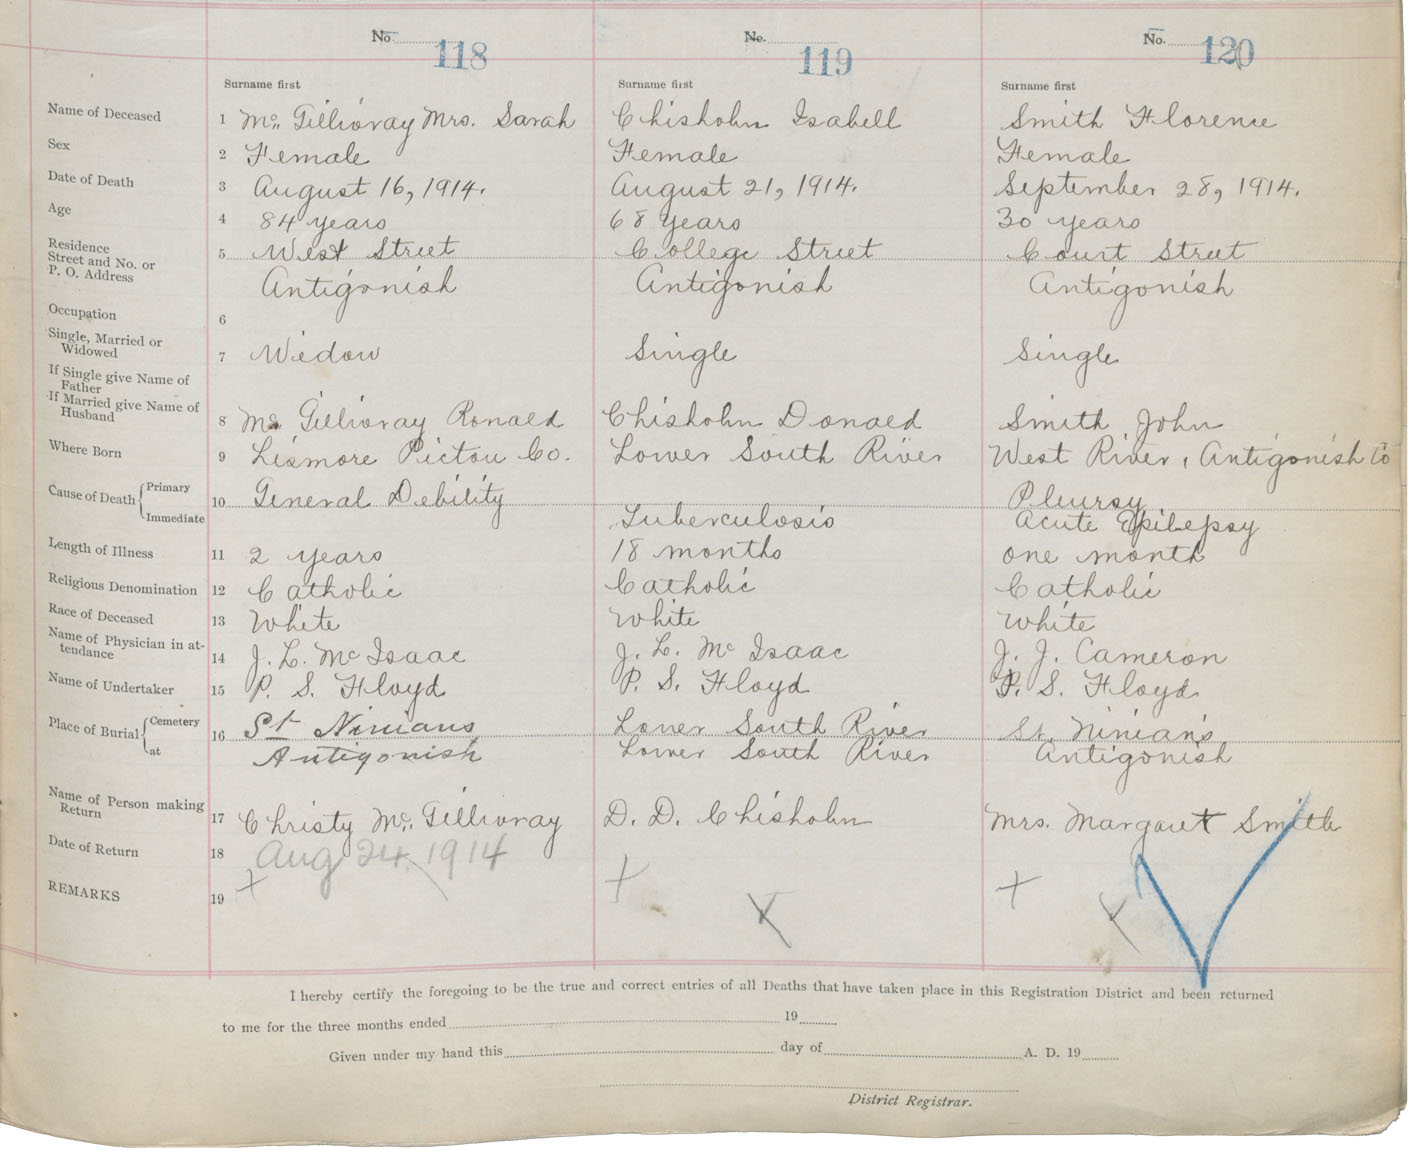 No. 118 No. 119 No. 120
Surname first Surname first Surname first
Name of Deceased 1 Mc Gillivray Mrs. Sarah Chisholm Isabell Smith Florence
Sex 2 Female Female Female
Date of Death 3 August 16, 1914. August 21, 1914. September 28, 1914.
Age 4 84 years 68 years 30 years
Residence
Street and No. or 5 West Street College Street Court Street
P. O. Address Antigonish Antigonish Antigonish
Occupation 6
Single, Married or
Widowed 7 Widow Single Single
If Single give Name of
Father
If Married give Name of
Husband 8 Mc Gillivray Ronald Chisholm Donald Smith John
Where Born 9 Lismore Pictou Co. Lower South River West River, Antigonish Co
Cause of Death Primary 10 General Debility Pleurisy
Immediate Tuberculosis Acute Epilepsy
Length of Illness 11 2 years 18 months one month
Religious Denomination 12 Catholic Catholic Catholic
Race of Deceased 13 White White White
Name of Physician in at-
tendance 14 J. L. Mc Isaac J. L. Mc Isaac J. J. Cameron
Name of Undertaker 15 P. S. Floyd P. S. Floyd P. S. Floyd
Place of Burial Cemetery 16 St Ninians Lower South River St. Ninian's
at Antigonish Lower South River Antigonish
Name of Person making
Return 17 Christy Mc Gillivray D. D. Chisholm Mrs. Margaret Smith
Date of Return 18 Aug 24, 1914
REMARKS 19
I hereby certify the foregoing to be the true and correct entries of all Deaths that have taken place in this Registration District and been returned
to me for the three months ended 19
Given under my hand this day of A. D. 19
District Registrar.